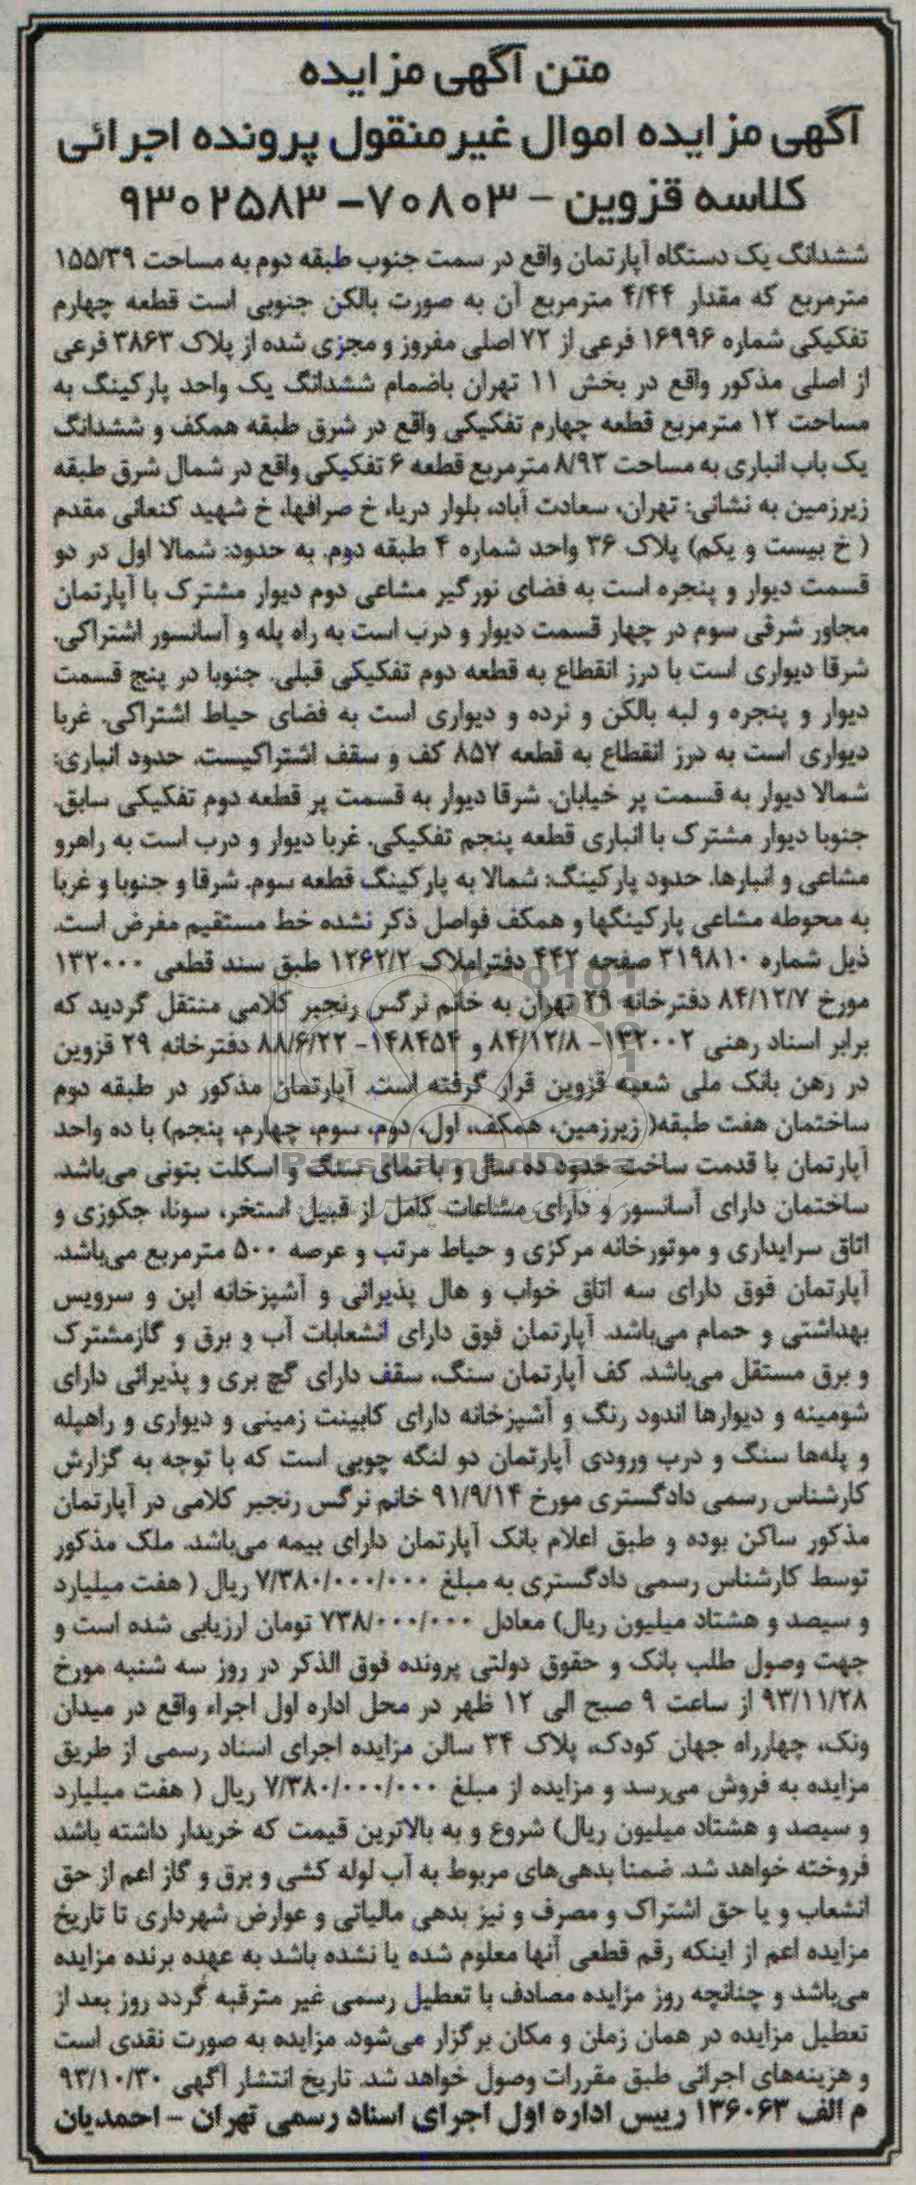 متن آگهی مزایده
آگهی مزایده اموال غیرمنقول پرونده اجرائی
کلاسه قزوین - ۷۰۸۰۳- ۹۳۰۲۵۸۳
ششدانگ یک دستگاه آپارتمان واقع در سمت جنوب طبقه دوم به مساحت ۱۵۵/۳۹
مترمربع که مقدار ۴/۴۴ مترمربع آن به صورت بالکن جنوبی است قطعه چهارم
تفکیکی شماره ۱۶۹۹۶ فرعی از ۷۲ اصلی مفروز و مجزی شده از پلاک ۳۸۶۳ فرعی
از اصلی مذکور واقع در بخش ۱۱ تهران باضمام ششدانگ یک واحد پارکینگ به
مساحت ۱۲ مترمربع قطعه چهارم تفکیکی واقع در شرق طبقه همکف و ششدانگ
یک باب انباری به مساحت ۸/۹۳ مترمربع قطعه ۶ تفکیکی واقع در شمال شرق طبقه
زیرزمین به نشانی: تهران، سعادت آباد، بلوار دریا، خ صرافها، خ شهید کنعانی مقدم
( خ بیست و یکم) پلاک ۳۶ واحد شماره ۴ طبقه دوم. به حدود: شمالا اول در دو
قسمت دیوار و پنجره است به فضای نورگیر مشاعی دوم دیوار مشترک با آپارتمان
مجاور شرقی سوم در چهار قسمت دیوار و درب است به راه پله و آسانسور اشتراکی.
شرقا دیواری است با درز انقطاع به قطعه دوم تفکیکی قبلی. جنوبا در پنج قسمت
دیوار و پنجره و لبه بالکن و نرده و دیواری است به فضای حیاط اشتراکی. غربا
دیواری است به درز انقطاع به قطعه ۸۵۷ کف و سقف اشتراکیست. حدود انباری:
شمالا دیوار به قسمت پر خیابان. شرقا دیوار به قسمت پر قطعه دوم تفکیکی سابق.
جنوبا دیوار مشترک با انباری قطعه پنجم تفکیکی. غربا دیوار و درب است به راهرو
مشاعی و انبارها. حدود پارکینگ: شمالا به پارکینگ قطعه سوم. شرقا و جنوبا و غربا
به محوطه مشاعی پارکینگها و همکف فواصل ذکر نشده خط مستقیم مفرض است.
ذیل شماره ۳۱۹۸۱۰ صفحه ۴۴۲ دفتراملاک ۱۲۶۲/۲ طبق سند قطعی ۱۳۲۰۰۰
مورخ ۸۴/۱۲/۷ دفترخانه ۲۹ تهران به خانم نرگس رنجبر کلامی منتقل گردید که
برابر اسناد رهنی ۱۳۲۰۰۲- ۸۴/۱۲/۸ و ۱۴۸۴۵۴- ۸۸/۶/۲۲ دفترخانه ۲۹ قزوین
در رهن بانک ملی شعبه قزوین قرار گرفته است. آپارتمان مذکور در طبقه دوم
ساختمان هفت طبقه( زیرزمین، همکف، اول، دوم، سوم، چهارم، پنجم) با ده واحد
آپارتمان با قدمت ساخت حدود ده سال و با نمای سنگ و اسکلت بتونی می‌باشد.
ساختمان دارای آسانسور و دارای مشاعات کامل از قبیل استخر، سونا، جکوزی و
اتاق سرایداری و موتورخانه مرکزی و حیاط مرتب و عرصه ۵۰۰ مترمربع می‌باشد.
آپارتمان فوق دارای سه اتاق خواب و هال پذیرائی و آشپزخانه اپن و سرویس
بهداشتی و حمام می‌باشد. آپارتمان فوق دارای انشعابات آب و برق و گازمشترک
و برق مستقل می‌باشد. کف آپارتمان سنگ، سقف دارای گچ بری و پذیرائی دارای
شومینه و دیوارها اندود رنگ و آشپزخانه دارای کابینت زمینی و دیواری و راهپله
و پله‌ها سنگ و درب ورودی آپارتمان دو لنگه چوبی است که با توجه به گزارش
کارشناس رسمی دادگستری مورخ ۹۱/۹/۱۴ خانم نرگس رنجبر کلامی در آپارتمان
مذکور ساکن بوده و طبق اعلام بانک آپارتمان دارای بیمه می‌باشد. ملک مذکور
توسط کارشناس رسمی دادگستری به مبلغ ۷/۳۸۰/۰۰۰/۰۰۰ ریال ( هفت میلیارد
و سیصد و هشتاد میلیون ریال) معادل ۷۳۸/۰۰۰/۰۰۰ تومان ارزیابی شده است و
جهت وصول طلب بانک و حقوق دولتی پرونده فوق الذکر در روز سه شنبه مورخ
۹۳/۱۱/۲۸ از ساعت ۹ صبح الی ۱۲ ظهر در محل اداره اول اجراء واقع در میدان
ونک، چهارراه جهان کودک، پلاک ۳۴ سالن مزایده اجرای اسناد رسمی از طریق
مزایده به فروش می‌رسد و مزایده از مبلغ ۷/۳۸۰/۰۰۰/۰۰۰ ریال ( هفت میلیارد
و سیصد و هشتاد میلیون ریال) شروع و به بالاترین قیمت که خریدار داشته باشد
فروخته خواهد شد. ضمنا بدهی‌های مربوط به آب لوله کشی و برق و گاز اعم از حق
انشعاب و یا حق اشتراک و مصرف و نیز بدهی مالیاتی و عوارض شهرداری تا تاریخ
مزایده اعم از اینکه رقم قطعی آنها معلوم شده یا نشده باشد به عهده برنده مزایده
می‌باشد و چنانچه روز مزایده مصادف با تعطیل رسمی غیر مترقبه گردد روز بعد از
تعطیل مزایده در همان زمان و مکان برگزار می‌شود. مزایده به صورت نقدی است
و هزینه‌های اجرائی طبق مقررات وصول خواهد شد. تاریخ انتشار آگهی ۹۳/۱۰/۳۰
م الف ۱۳۶۰۶۳ رییس اداره اول اجرای اسناد رسمی تهران - احمدیان
ParsNamadData